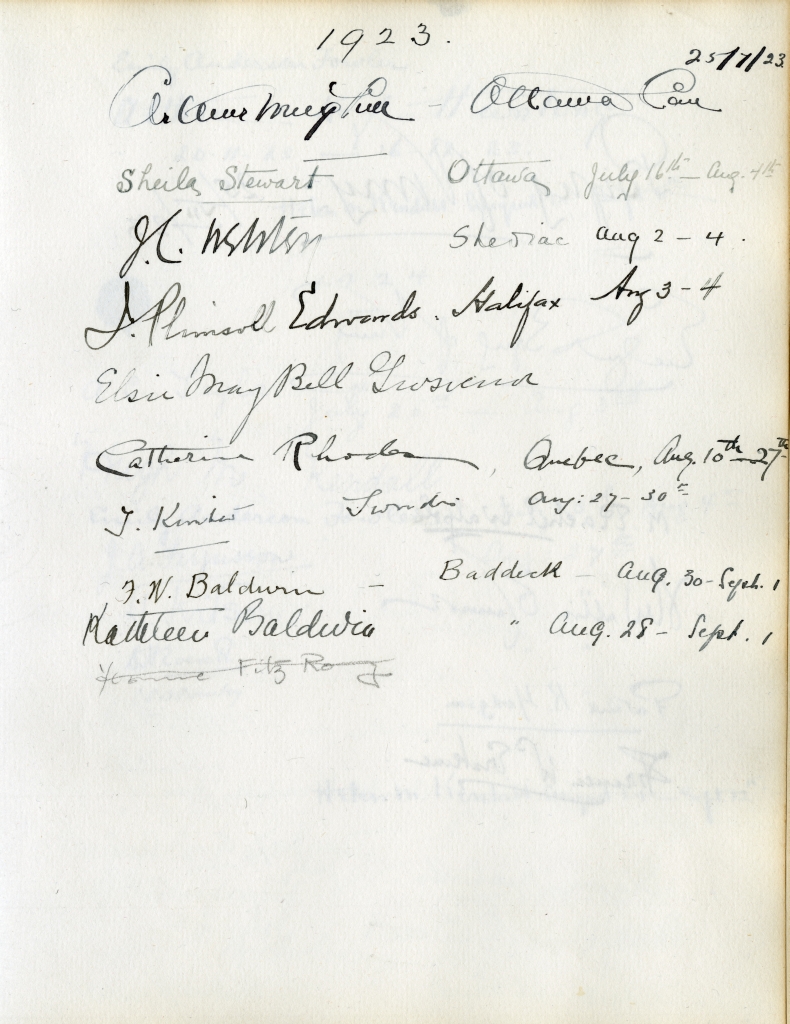 1923.
25/7/23
Arthur Meighen - Ottawa Can
Sheila Stewart Ottawa July 16th - Aug. 4th
J.C. Webster Shediac Aug 2 - 4.
J. Plimsoll Edwards. Halifax Aug 3 - 4
Elsie May Bell Grosvenor
Catherine Rhodes, Quebec, Aug. 10th - 27th
Aug: 27 - 30th
F.W. Baldwin - Baddeck - Aug. 30 - Sept. 1
Kathleen Baldwin " Aug. 28 - Sept. 1
Fitz Roy